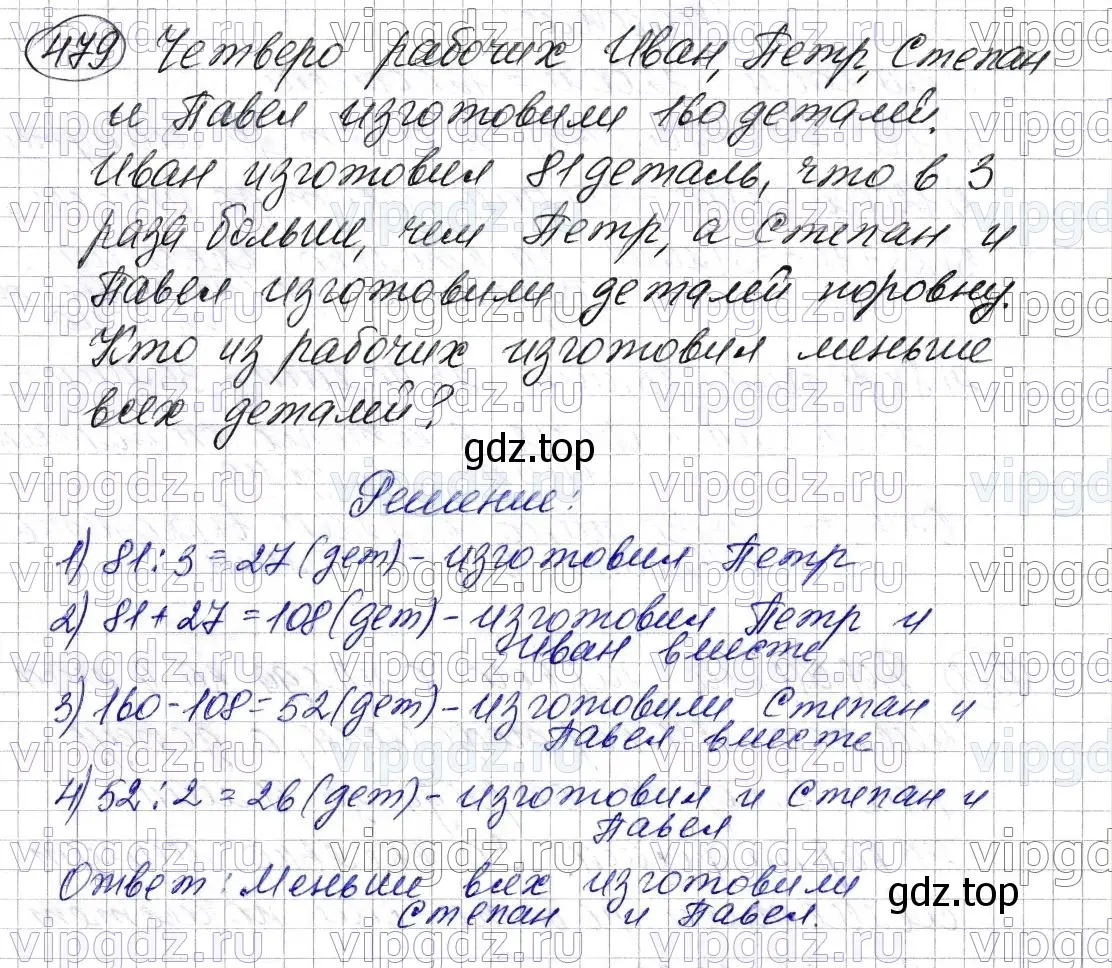 479 Четверо рабочих Иван, Петр, Степан
и Павел изготовили 160 деталей.
Иван изготовил 81 деталь, что в 3
раза больше, чем Петр, а Степан и
Павел изготовили деталей поровну.
Кто из рабочих изготовил меньше
всех деталей?
gdz.top
Решение:
1) 81:3=27(дет)-изготовил Петр
2) 81+27=108(дет)-изготовил Петр и
Иван вместе
3) 160-108=52(дет)-изготовили Степан и
Павел вместе
4) 52:2=26(дет)-изготовил и Степан и
Павел
Ответ: Меньше всех изготовили
gdz.top
Степан и Павел.